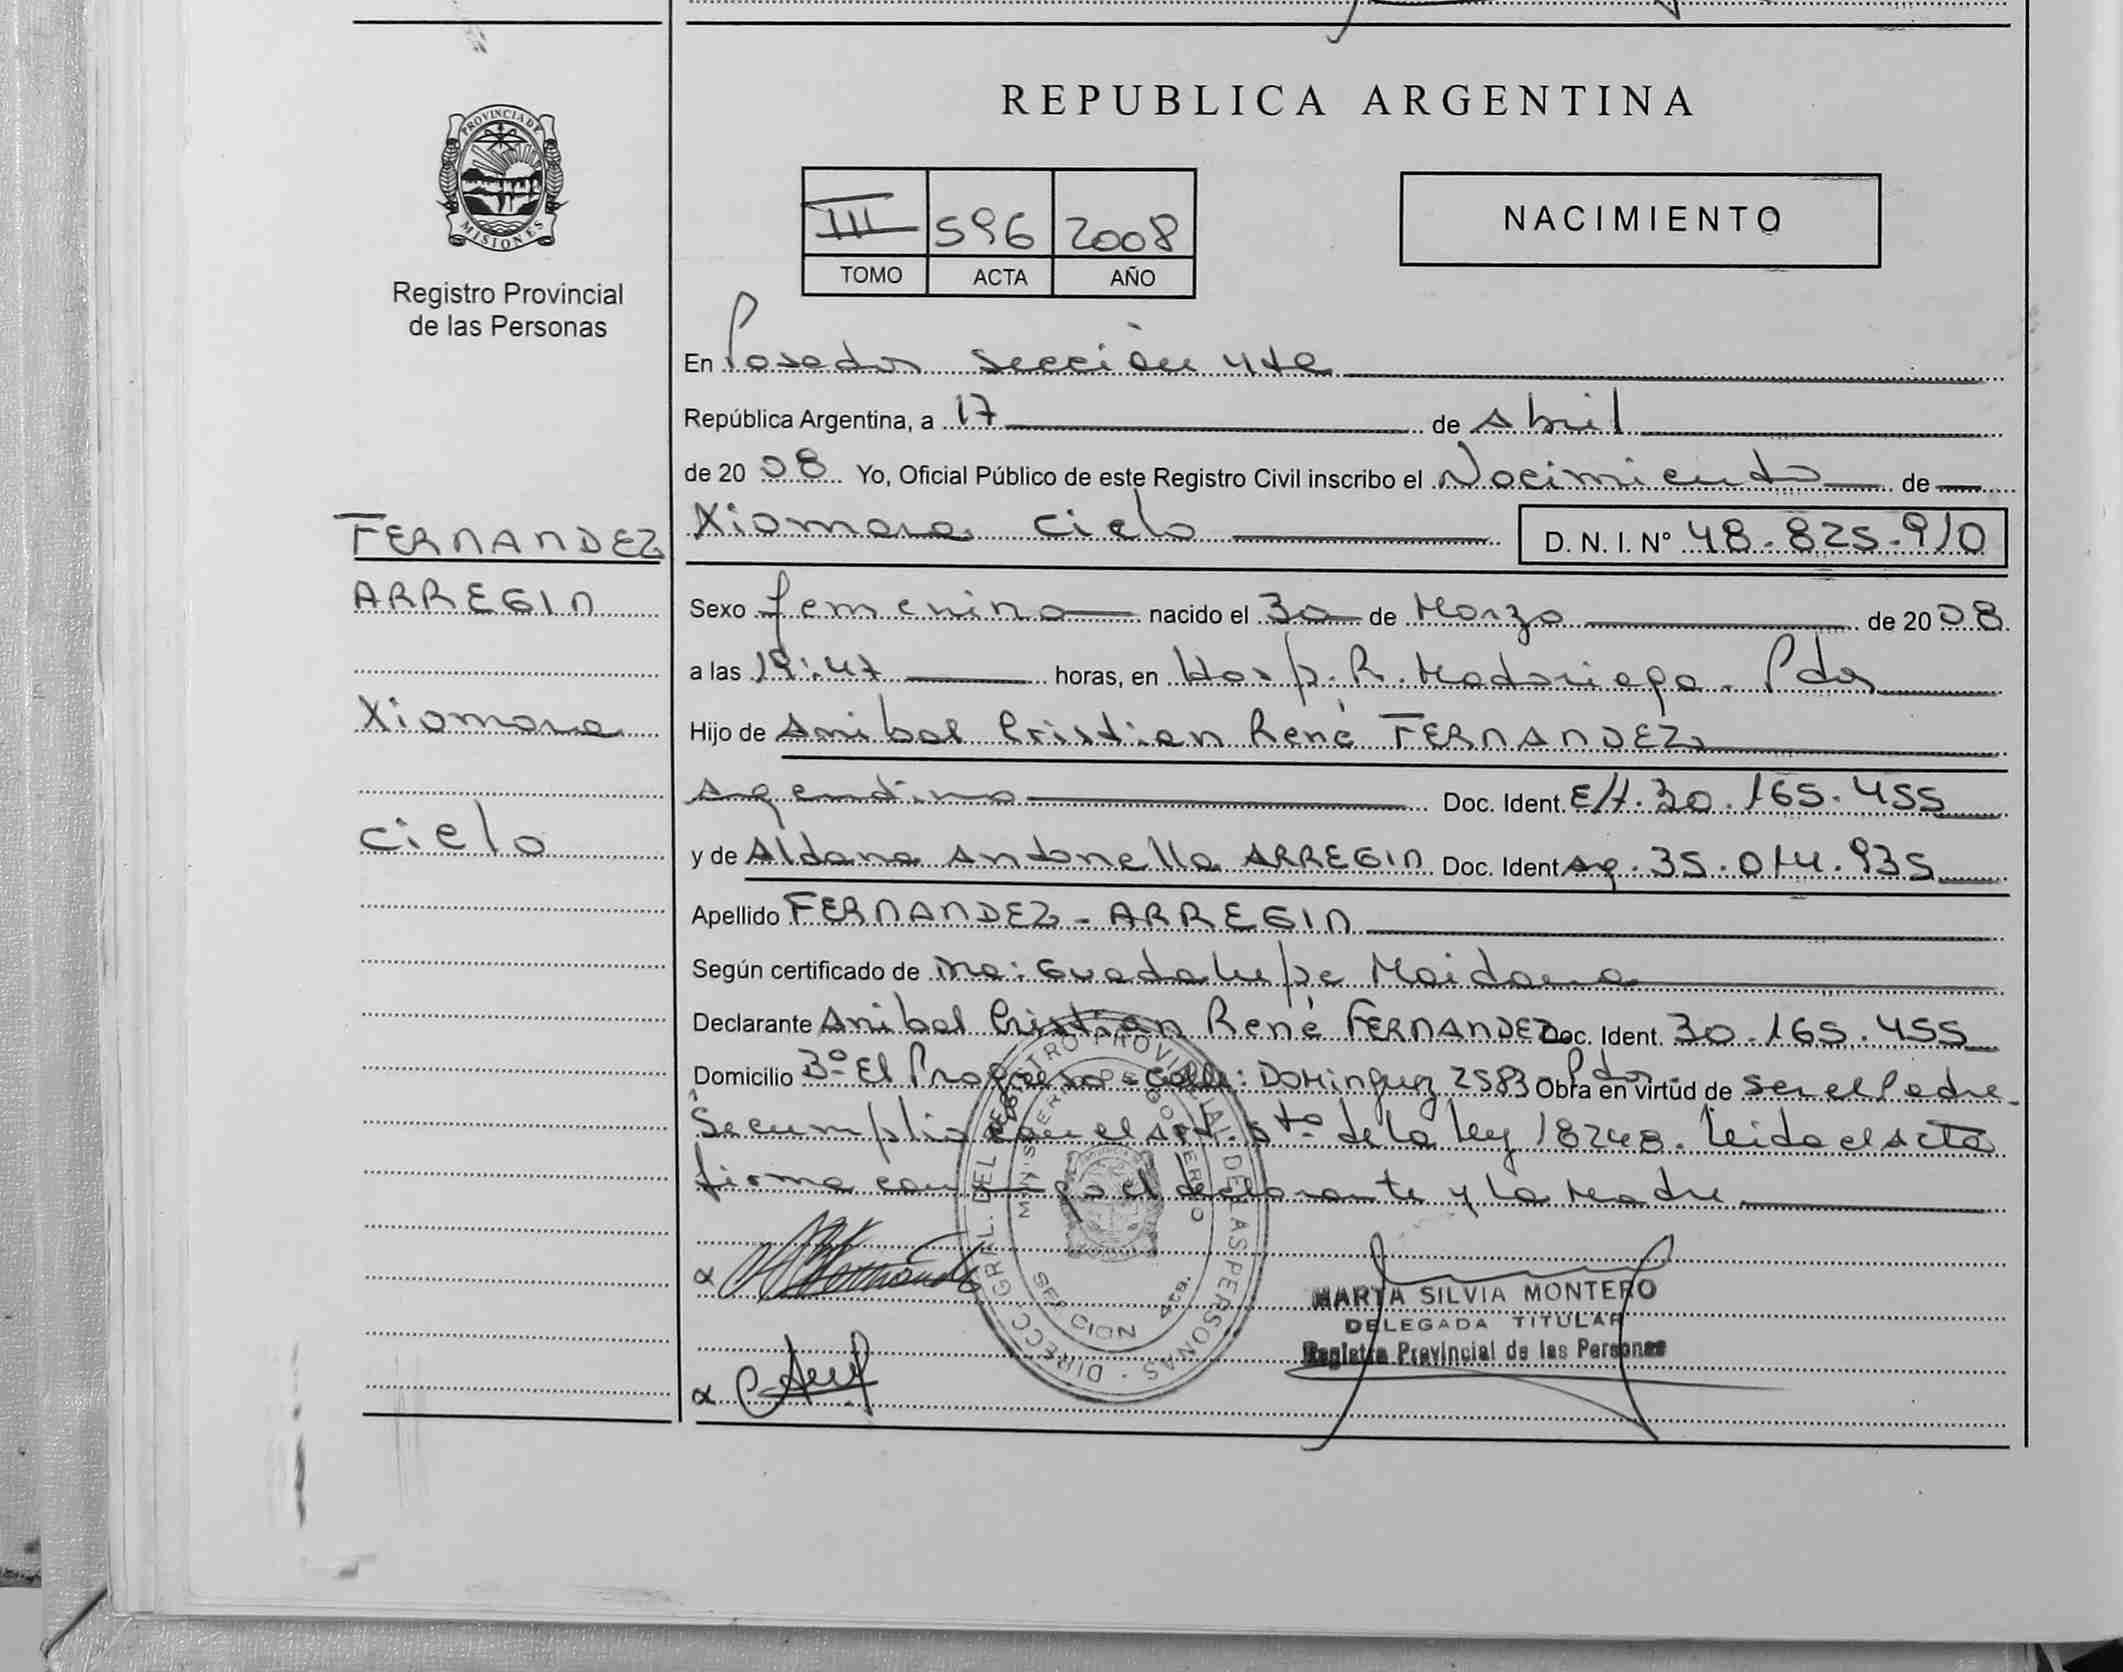 REPUBLICA ARGENTINA
PROVINCIA DE
MISIONES
Registro Provincial
de las Personas
III 596 2008
TOMO ACTA AÑO
NACIMIENTO
En Posadas sección 4ta
República Argentina, a 17 de Abril
de 2008 Yo, Oficial Público de este Registro Civil inscribo el Nacimiento de
Xiomara Cielo D. N. I. N° 48.825.910
FERNANDEZ
ARREGIN
Xiomara
Cielo
Sexo femenino nacido el 30 de Marzo de 2008
a las 19:47 horas, en Hosp. R. Madariaga - Pdas
Hijo de Anibal Cristian René FERNANDEZ
Argentino Doc. Ident. 30.165.455
y de Aldana Antonella ARREGIN Doc. Ident Ag. 35.014.935
Apellido FERNANDEZ - ARREGIN
Según certificado de Ma: Guadalupe Maidana
Declarante Anibal Cristian René FERNANDEZ Doc. Ident. 30.165.455
Domicilio B° El Progreso - Calle: Dominguez 2583 Pdas Obra en virtud de ser el Padre.
Se cumplió con el art. 5to de la ley 18248. Leida el acta
firma conmigo el declarante y la Madre
DIRECC. GRAL. DEL REGISTRO PROVINCIAL DE LAS PERSONAS
MINISTERIO DE GOBIERNO
SECCION 4ta.
MARTA SILVIA MONTERO
DELEGADA TITULAR
Registro Provincial de las Personas